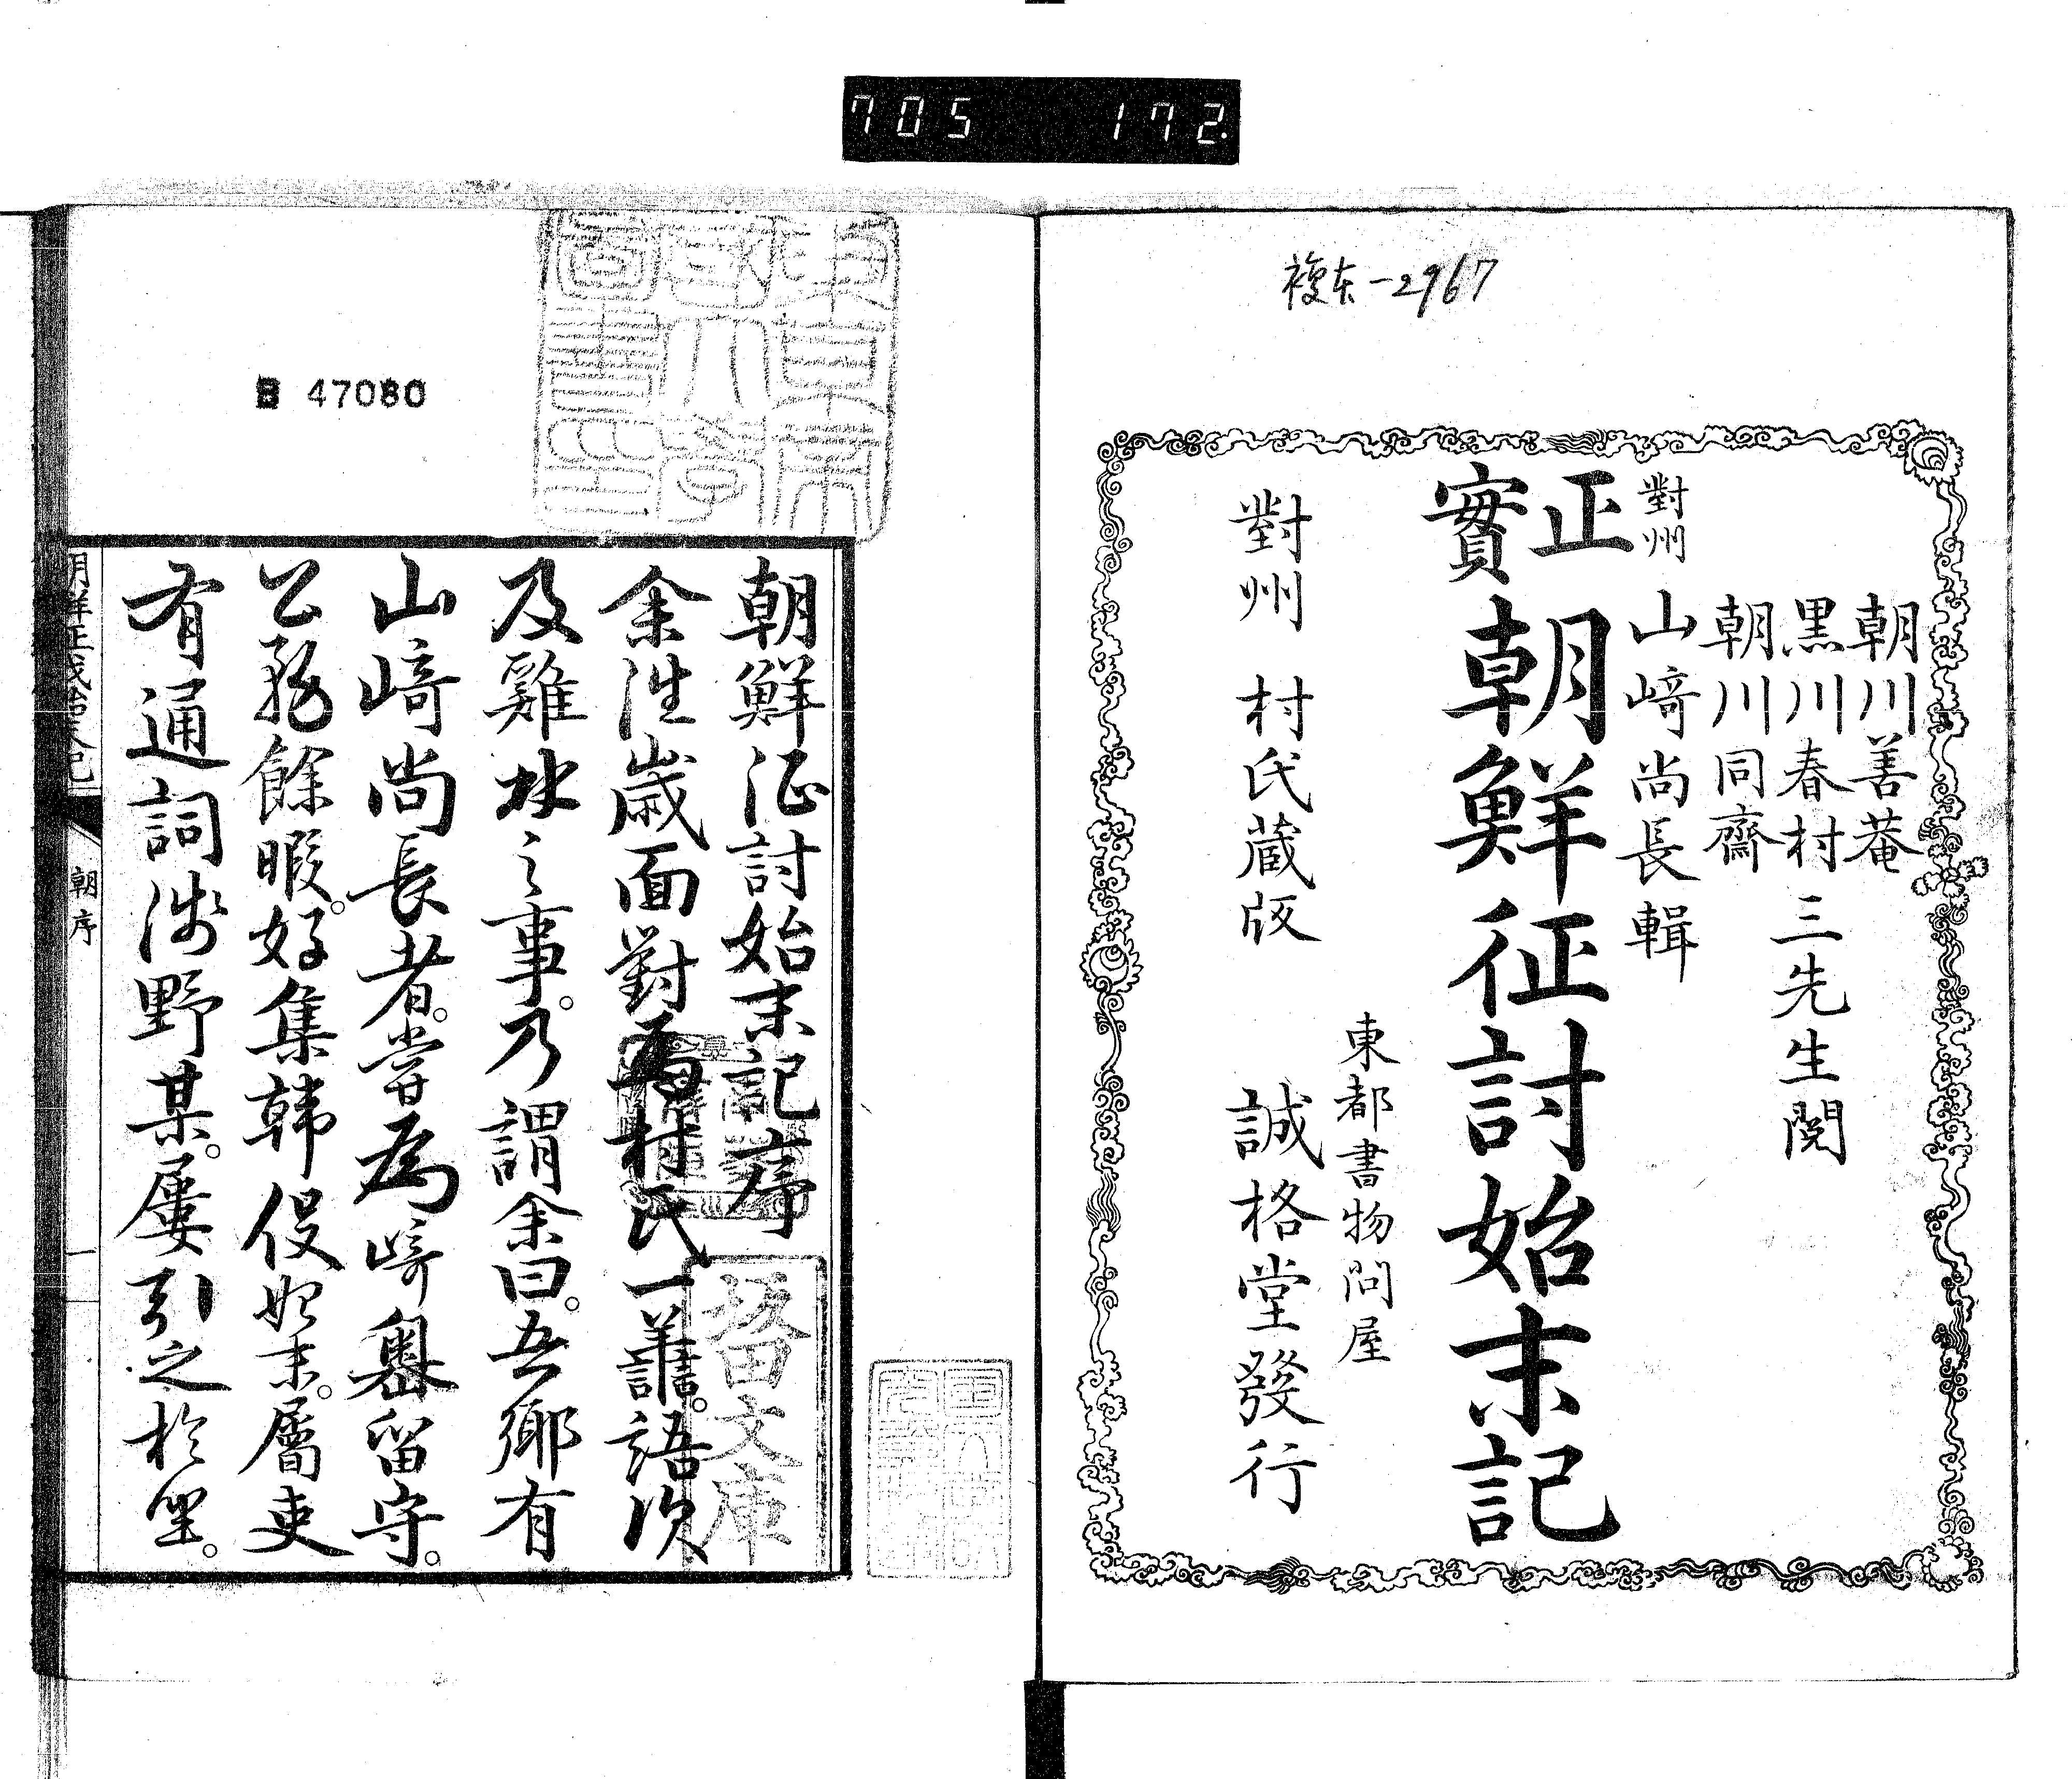 705 172
複本-2967
朝川善菴
黒川春村 三先生閱
朝川同齋
對州 山﨑尚長輯
正實 朝鮮征討始末記
東都書物問屋
對州 村氏蔵版 誠格堂發行
B 47080
朝鮮征討始末記序
余往歲面對馬村氏一譱。語次
及雞林之事。乃謂余曰。吾鄉有
山﨑尚長者。嘗為﨑嶴留守。
公務餘暇。好集韓役始末。屬吏
有通詞浅野某。屢引之於坐。
朝序
一
坂田文庫